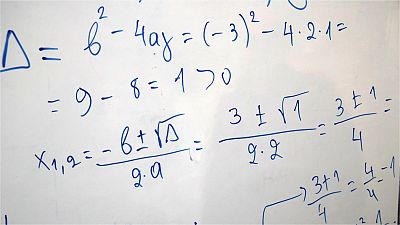 Δ = b² - 4ay = (-3)² - 4·2·1 =
= 9 - 8 = 1 > 0
x₁,₂ = (-b ± √Δ)/(2·a) = (3 ± √1)/(2·2) = (3 ± 1)/4 =
(3+1)/4 = 4/4 = 1